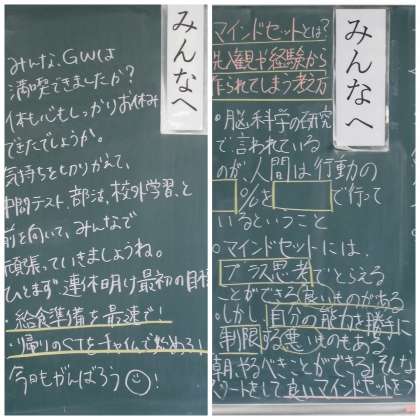 みんなへ
みんな、GWは
満喫できましたか?
体も心もしっかりお休み
できたでしょうか。
気持ちを切りかえて、
中間テスト、部活、校外学習、と
前を向いて、みんなで
頑張っていきましょうね。
ひとまず、連休明け最初の目標
・給食準備を最速で!
・帰りのSTをチャイムで
今日もがんばろう
みんなへ
マインドセットとは?
先入観や経験から
作られてしまう考え方
○脳科学の研究
で言われている
のが、人間は行動の
%を で行って
いるということ
○マインドセットには、
プラス思考でとらえる
ことができる良いものがある
○しかし、自分の能力を勝手に
制限する悪いものもある
朝、やるべきことができる、そんな
スタートをして良いマインドセットを